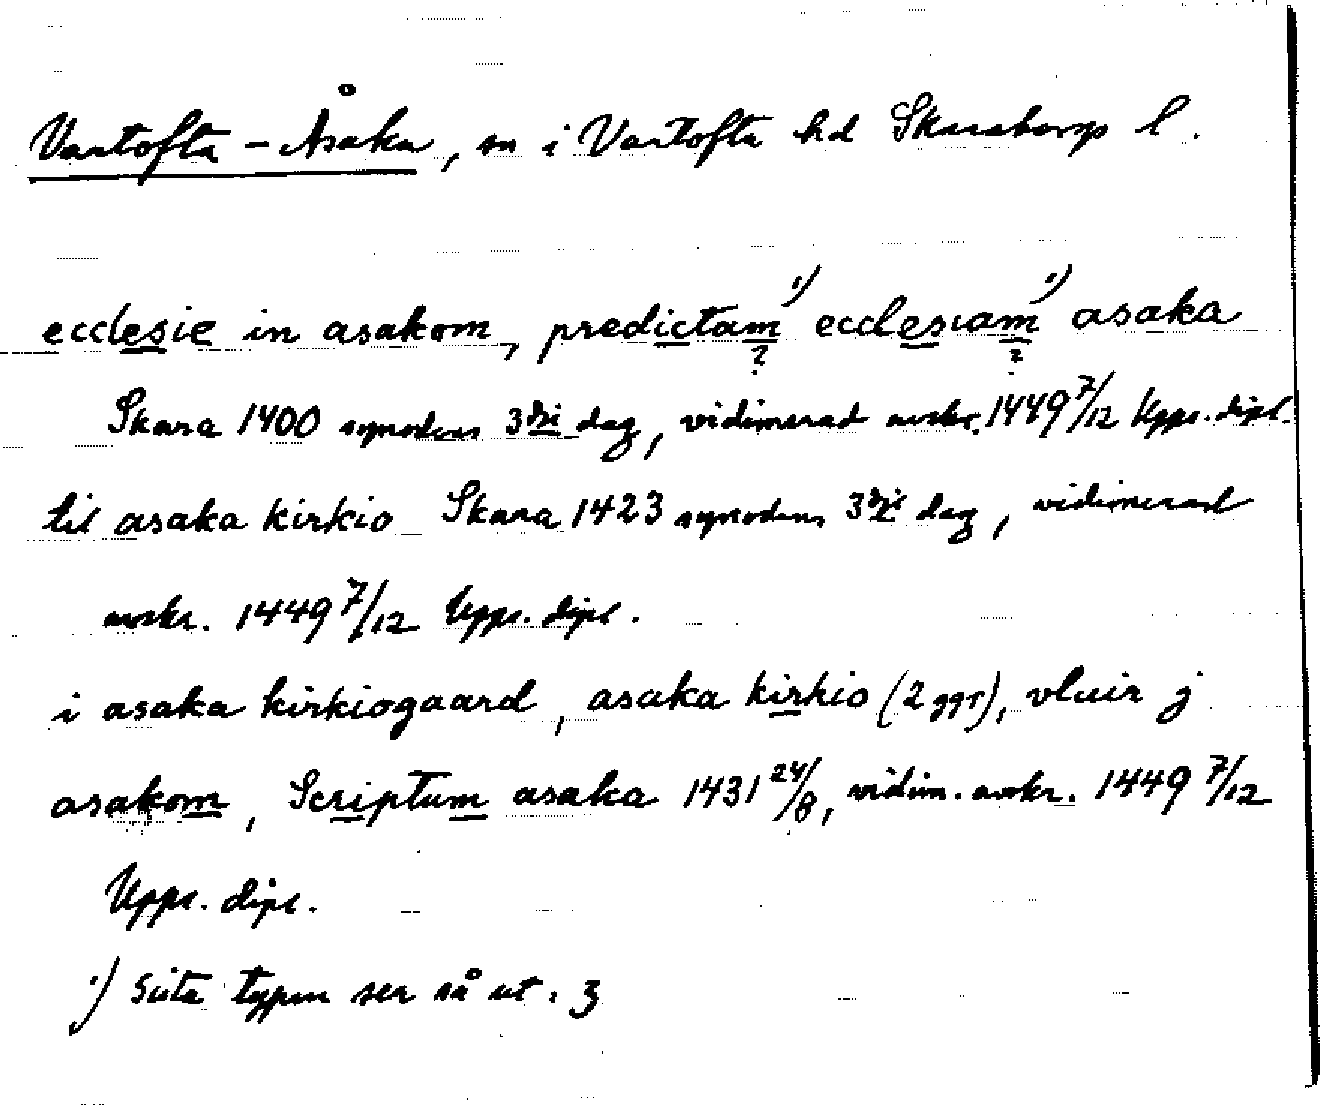 Vartofta-Åsaka, sn i Vartofta hd Skaraborgs l.
ecclesie in asakom, predictam¹) ecclesiam¹) asaka
? ?
Skara 1400 synodens 3dzi dag, vidimerad avskr. 1449 7/12 Upps. dipl.
til asaka kirkio Skara 1423 synodens 3dzi dag, vidimerad
avskr. 1449 7/12 Upps. dipl.
i asaka kirkiogaard, asaka kirkio (2 ggr), vluir j
asakom, Scriptum asaka 1431 24/8, vidim. avskr. 1449 7/12
Upps. dipl.
¹) Sista typen ser så ut: ʒ